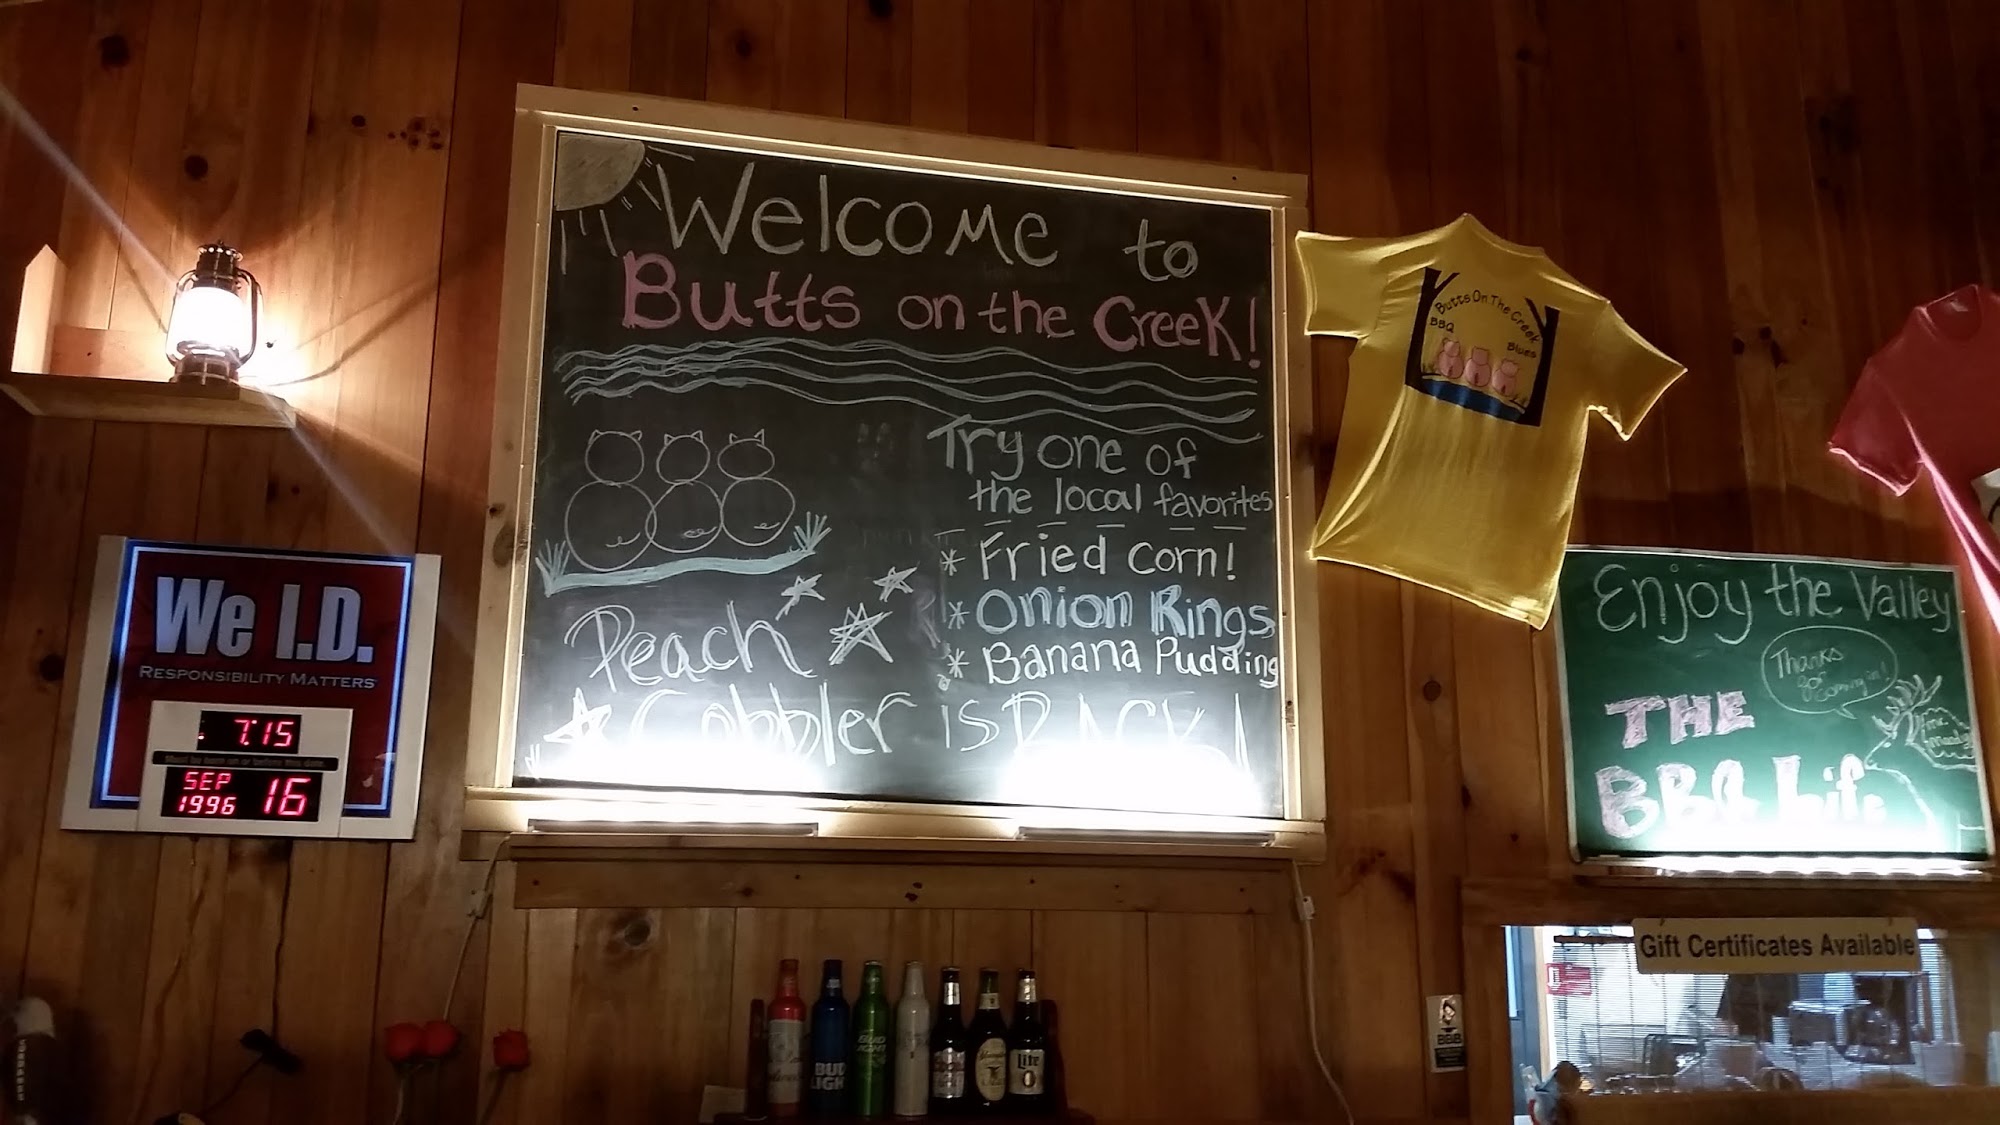 Welcome to
Butts on the Creek!
Try one of
the local favorites
* Fried Corn!
* Onion Rings
* Banana Pudding
Peach
Cobbler is BACK!
We I.D.
RESPONSIBILITY MATTERS
7:15
Must be born on or before this date.
SEP
1996 16
Butts On The Creek
BBQ
Blues
Enjoy the Valley
Thanks
for
coming in!
THE
BBQ Life
Gift Certificates Available
BUD
LIGHT
BUD
LIGHT
Lite
BBB